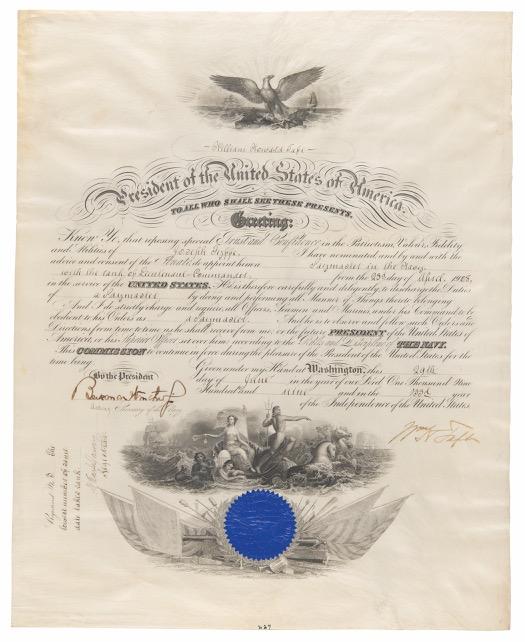 William Howard Taft
President of the United States of America.
TO ALL WHO SHALL SEE THESE PRESENTS,
Greeting:
Know Ye, that reposing special Trust and Confidence in the Patriotism, Valour, Fidelity
and Abilities of Joseph I have nominated and by and with the
advice and consent of the Senate do appoint him a Paymaster in the Navy
with the rank of Lieutenant-Commander from the 23d day of April 1908,
in the service of the UNITED STATES. He is therefore carefully and diligently to discharge the Duties
of a Paymaster by doing and performing all Manner of Things thereto belonging
And I do strictly charge and require all Officers, Seamen and Marines under his Command to be
obedient to his Orders as a Paymaster And he is to observe and follow such Orders and
Directions from time to time as he shall receive from me, or the future PRESIDENT of the United States of
America, or his Superior Officer set over him, according to the Rules and Discipline of THE NAVY.
This COMMISSION to continue in force during the pleasure of the President of the United States for the
time being.
Given under my Hand at Washington, this 29th
day of June in the year of our Lord One Thousand Nine
Hundred and nine and in the 133d year
of the Independence of the United States
By the President
Beekman Winthrop
Acting Secretary of the Navy.
Wm H Taft
Registered No.
Registrar
date takes rank
227